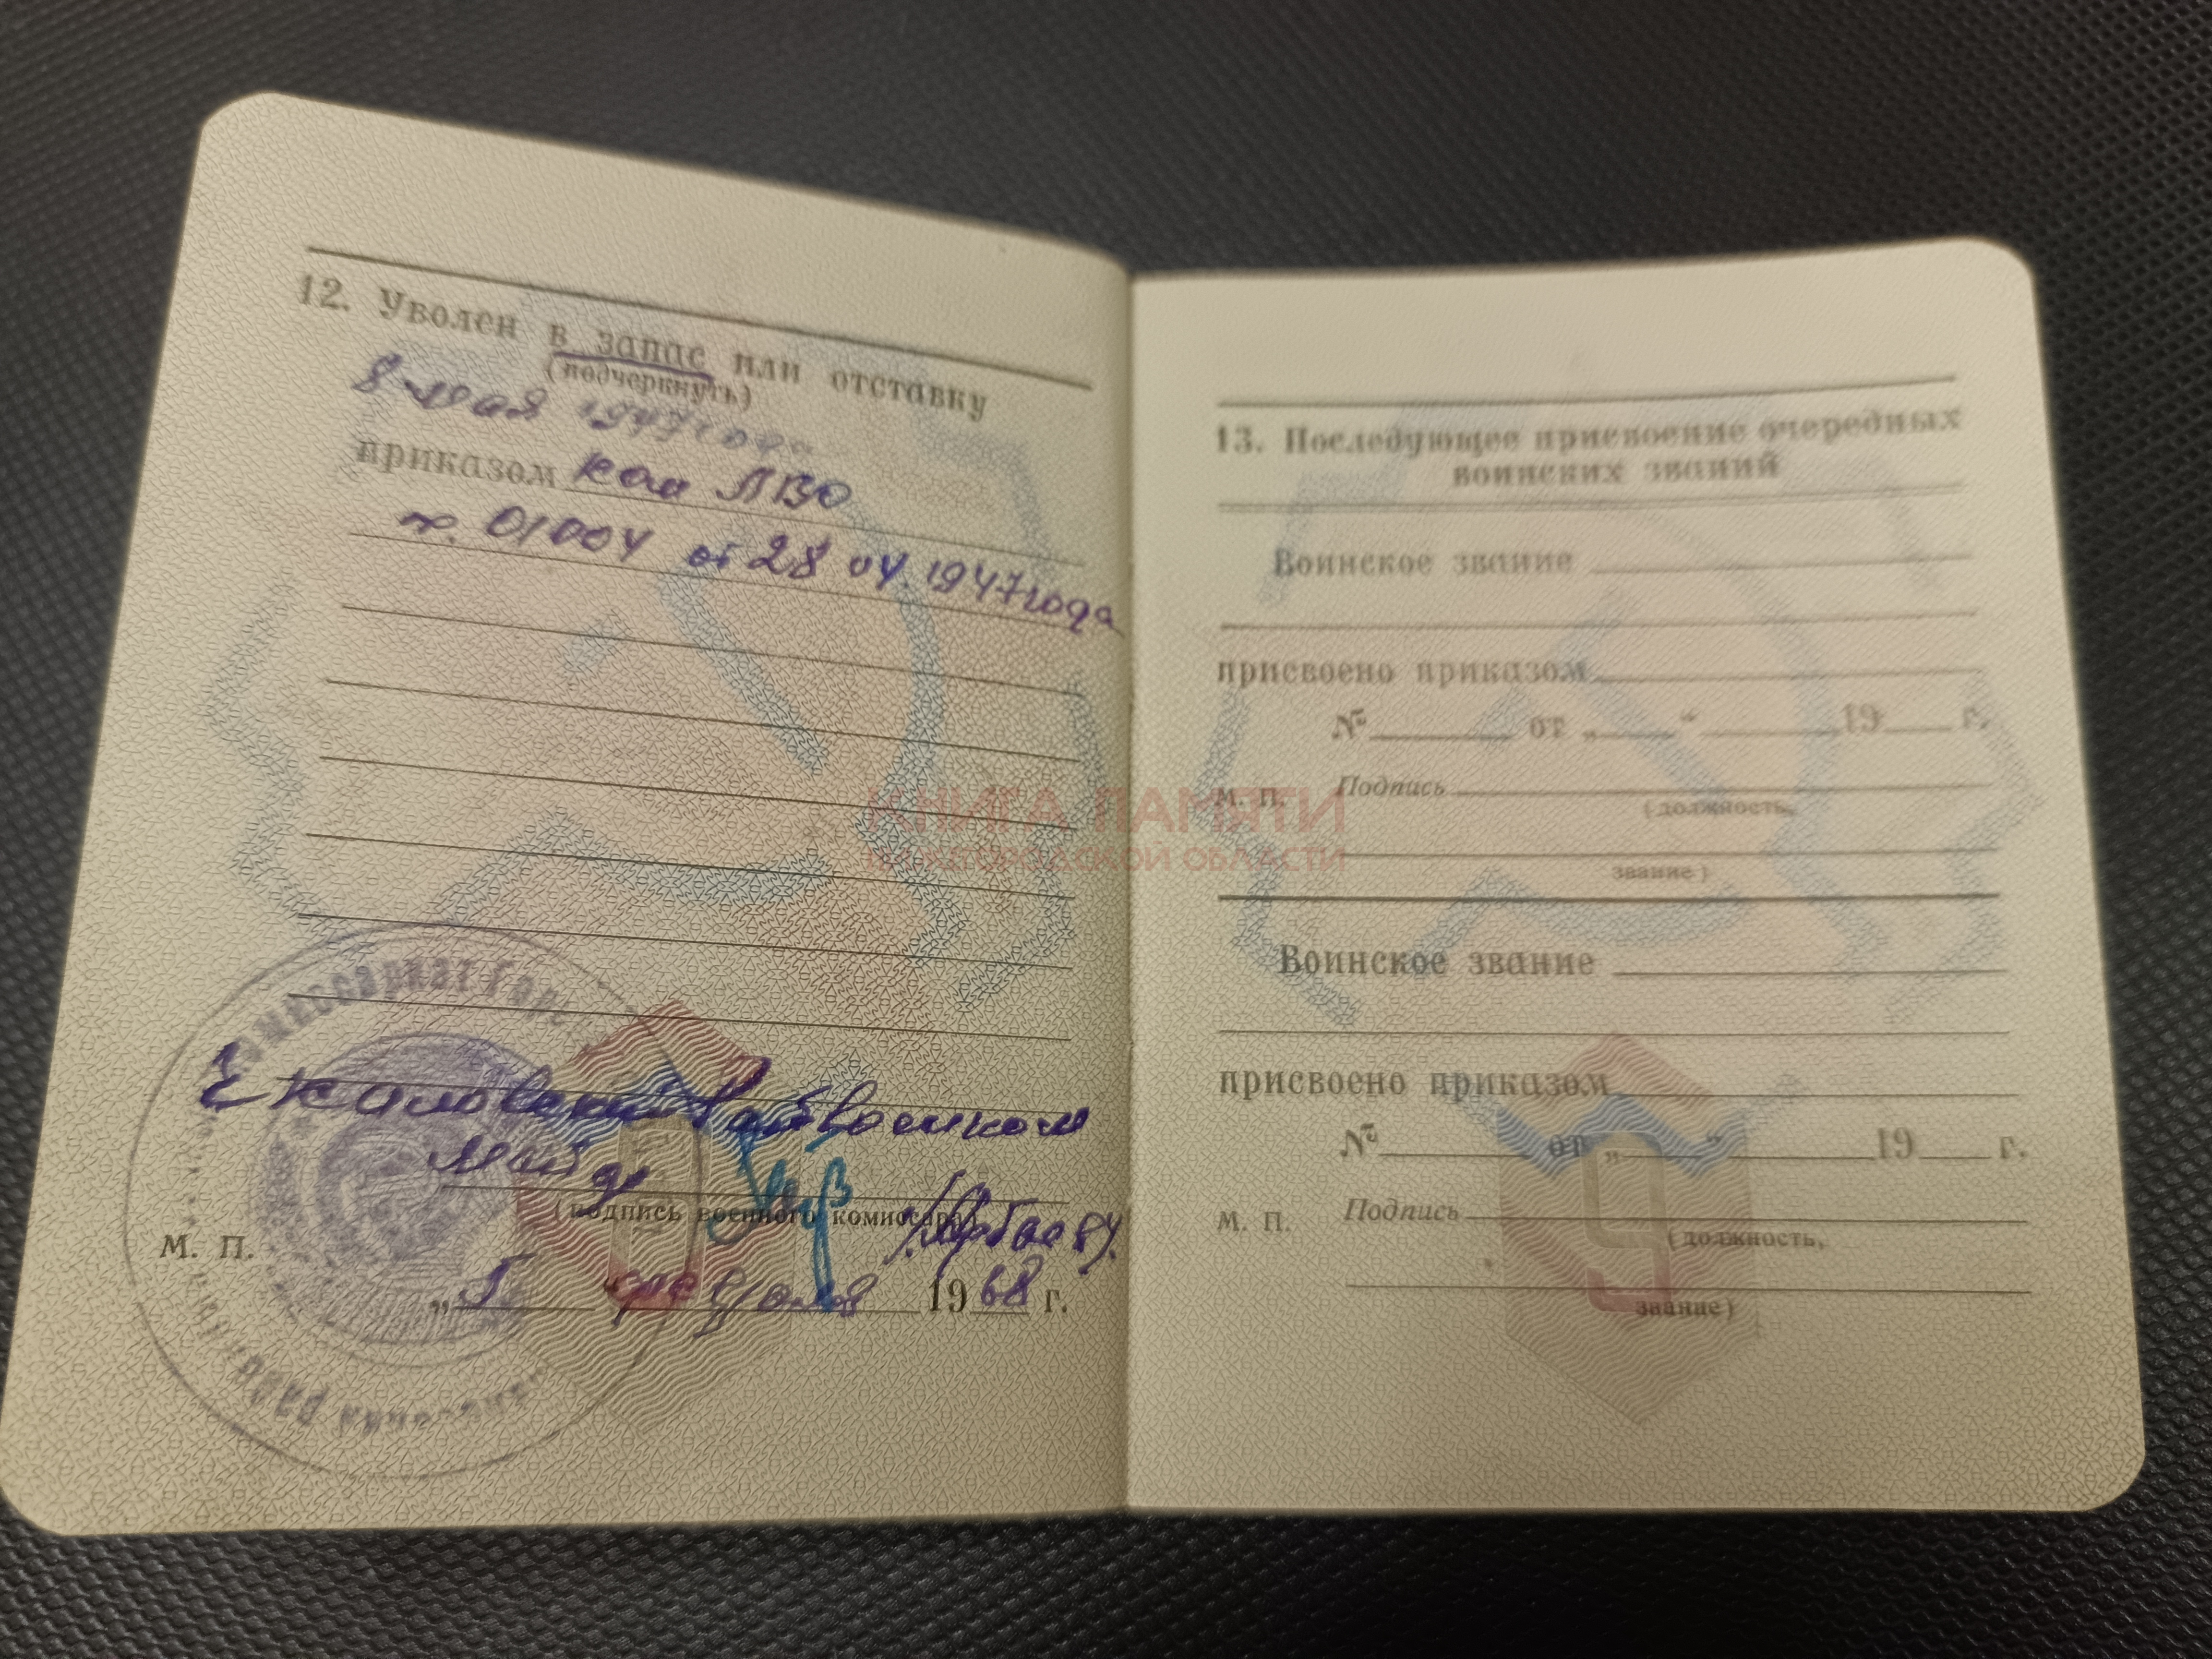 12. Уволен в запас или отставку
(подчеркнуть)
8 мая 1947 года
приказом ком ЛВО
н. 01004 от 28 04 1947 года
Чкаловский райвоенком
(подпись военного комиссара)
М. П.
„ 5 “ 1968 г.
13. Последующее присвоение очередных
воинских званий
Воинское звание
присвоено приказом
№ от „ “ 19 г.
М. П. Подпись
(должность,
звание)
Воинское звание
присвоено приказом
№ от „ “ 19 г.
М. П. Подпись
(должность,
звание)
КНИГА ПАМЯТИ
НИЖЕГОРОДСКОЙ ОБЛАСТИ